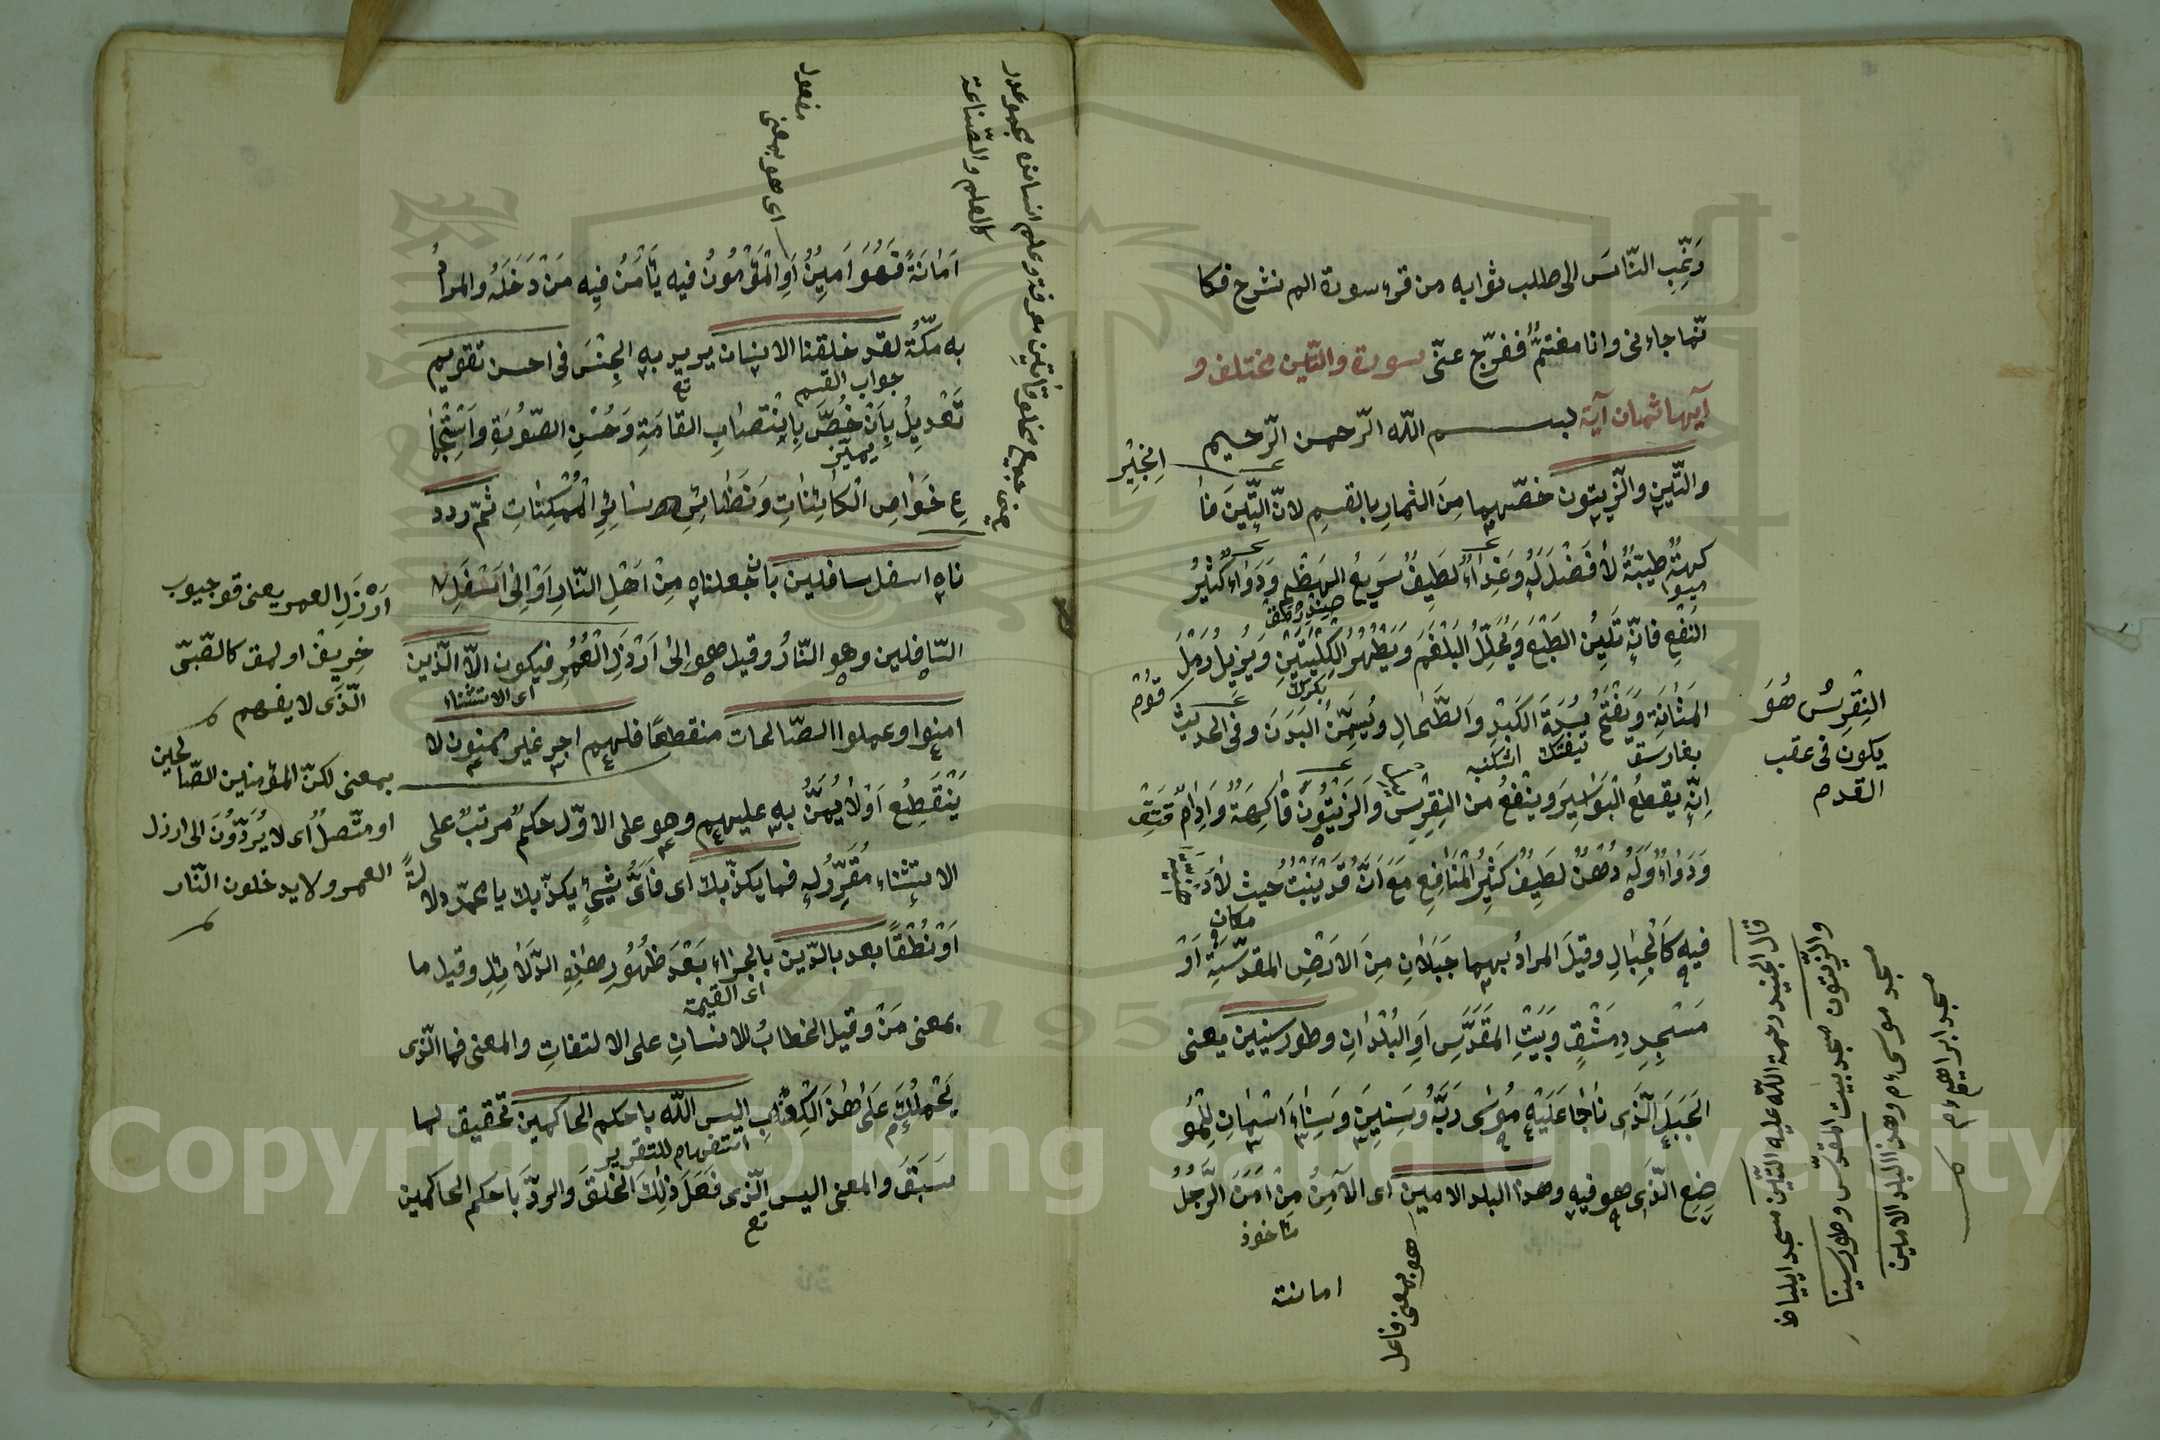 رَغِّبِ النَّاسَ الى طلب ثوابه من قرء سورة الم نشرح فكا
نّما جاءنى وانا مغتمٌّ ففرّج عنّى سورة والتّين مختلف و
آيها ثمان آية بسم اللّه الرّحمن الرّحيم
والتّينِ والزّيتون خصّهما مِنَ الثمارِ بالقسمِ لانّ التّينَ فا
كهةٌ طيبّةٌ لا فَضْلَ لَهُ وغِذاءٌ لَطيفٌ سَريعُ الهَضْمِ وَدَواءٌ كثيرُ
النفعِ فانّه تَليِّنُ الطَبْعَ ويُحَلِّلُ البَلْغَمَ وَيُطَهِّرُ الكُلْيَتَيْنِ وَيُزيلُ رَمْلَ
المَثانَةِ وَيَفْتَحُ سُدَّةَ الكَبْدِ والطَّحالِ ويُسَمِّنُ البَدَنَ وفى الحديث
اِنّه يقطعُ البْوَاسِيرَ وينفعُ من النِقْرِسِ والزَيْتُونُ فاكِهَةٌ وَاِدامٌ
وَدَواءٌ وَلَهُ دُهْنٌ لَطيفٌ كَثيرُ الْمَنافِعِ مَعَ اَنَّهُ قَدْ يَنْبُتُ حيث لا
فيهِ كَالْجِبَالِ وقيلَ المرادُ بهما جَبَلانِ مِنَ الارْضِ المقدّسَةِ اَوْ
مَسْجِدِ دِمَشْقٍ وَبَيْتِ المَقَدَّسِ اَوِ البُلْدانِ وطور سنيين يعنى
الجَبَلَ الّذى ناجا عَلَيْهِ مُوسى رَبَّهُ وَسنينَ وسيناءُ اسْمانِ لِلْمَوْ
ضِعِ الّذى هو فيهِ وهذا البلد الامين اى الآمِنُ مِنْ اَمَنَ الرَّجُلُ
انجير
قوم
مكان
مأخوذ
امانته
هو بمعنى فاعل
النِقْرِسُ هُوَ
يكون فى عقب
القدم
قال الجنيد رحمة اللّه عليه التّين مسجد
والزّيتون مسجد بيت المقدّس وطور سينا
مسجد موسى ءم وهذا البلد الامين
مسجد ابراهيم ءم
اَمانَةً فَهُوَ اَمينٌ اَوِ الْمَأْمُونُ فيه يَأْمَنُ فِيهِ مَنْ دَخَلَهُ والمرادُ
به مكّةُ لقد خلقنا الانسان يريد بهِ الجِنْسَ فى احسن تقويم
جواب القسم
تَعْديلٌ بِاَنْ خُصَّ بِاِنْتِصابِ القامَةِ وَحُسْنِ الصّورَةِ واسْتِجْما
عِ خَواصِ الْكائِناتِ وَنَظائِرِ سائِرِ الْمُمْكِناتِ ثمّ ردد
ناه اسفل سافلين بان جعلناه مِنْ اَهْلِ النّارِ اَوْ اِلى اَسْفَلِ
السّافلين وهو النّارُ وقيل هو اِلى اَرْذَلِ الْعُمُرِ فيكون الّا الّذين
اى الاستثناء
امنوا وعملوا الصّالحات منقطعًا فلهم اجر غير ممنون لا
يَنْقَطِعُ اَوْ لا يُمَنُّ به عليهم وهو على الاوّل حكمٌ مرتبٌ على
الاستثناء مُقَرِّرٌ له فما يكذّبك اى فَاَىُّ شَىْءٍ يكذّبك يا محمّد دلا
لةً
اَوْ نُطْقًا بعد بالدّين بالجزاء بَعْدَ ظُهُورِ هذِهِ الدَّلائِلِ وقيل ما
اى القيمة
بمعنى مَنْ وقيل الخطابُ للانسانِ على الالتفاتِ والمعنى فما الّذى
يَحْمِلُكَ عَلى هذا الْكِذْبِ اليس اللّه باحكم الحاكمين تحقيق لما
استفهام للتقرير
سَبَقَ والمعنى اليس الّذى فَعَلَ ذلِكَ الخَلْقَ والردَّ باحكم الحاكمين
مفعول
اى هو بمعنى
كالعلم والصّناعة
اَرْذَلِ العمر يعنى قوجيوب
خريف اولمق كالصّبىّ
الّذى لا يفهم
بمعنى لكنّ المؤمنين الصّالحين
او متّصلٌ اى لا يُرَدّونَ الى ارذل
العمر ولا يدخلون النّار
Copyright © King Saud University
1957